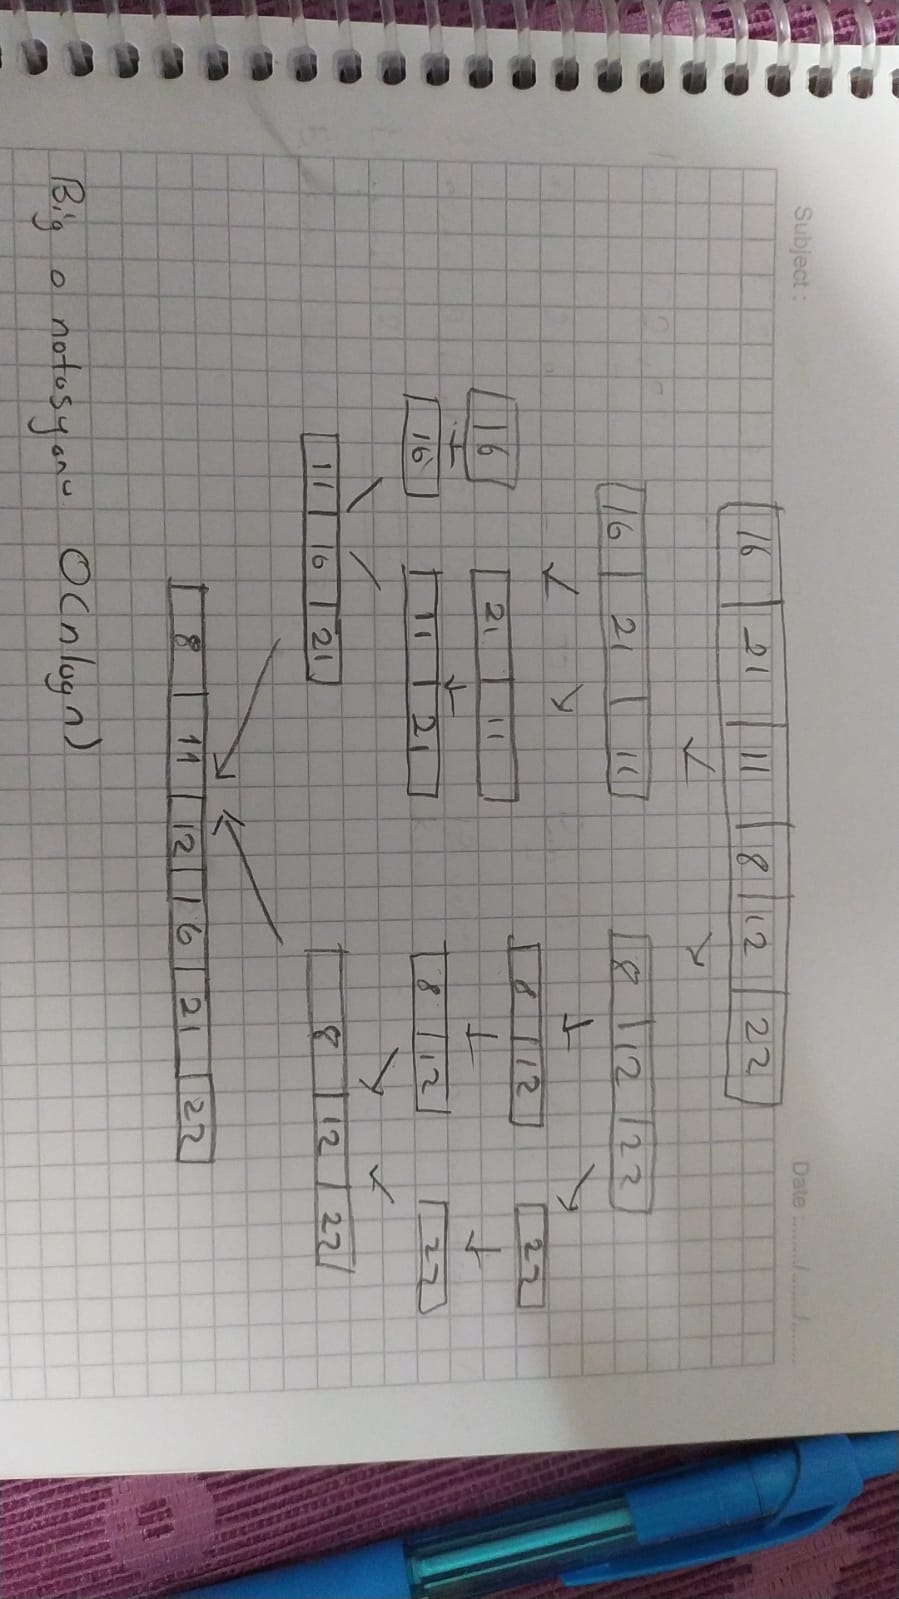 Subject :
Date : ......./......./.......
16 21 11 8 12 22
16 21 11 8 12 22
16 21 11 8 12 22
16 11 21 8 12 22
11 16 21 8 12 22
8 11 12 16 21 22
Big o notasyonu O(nlogn)